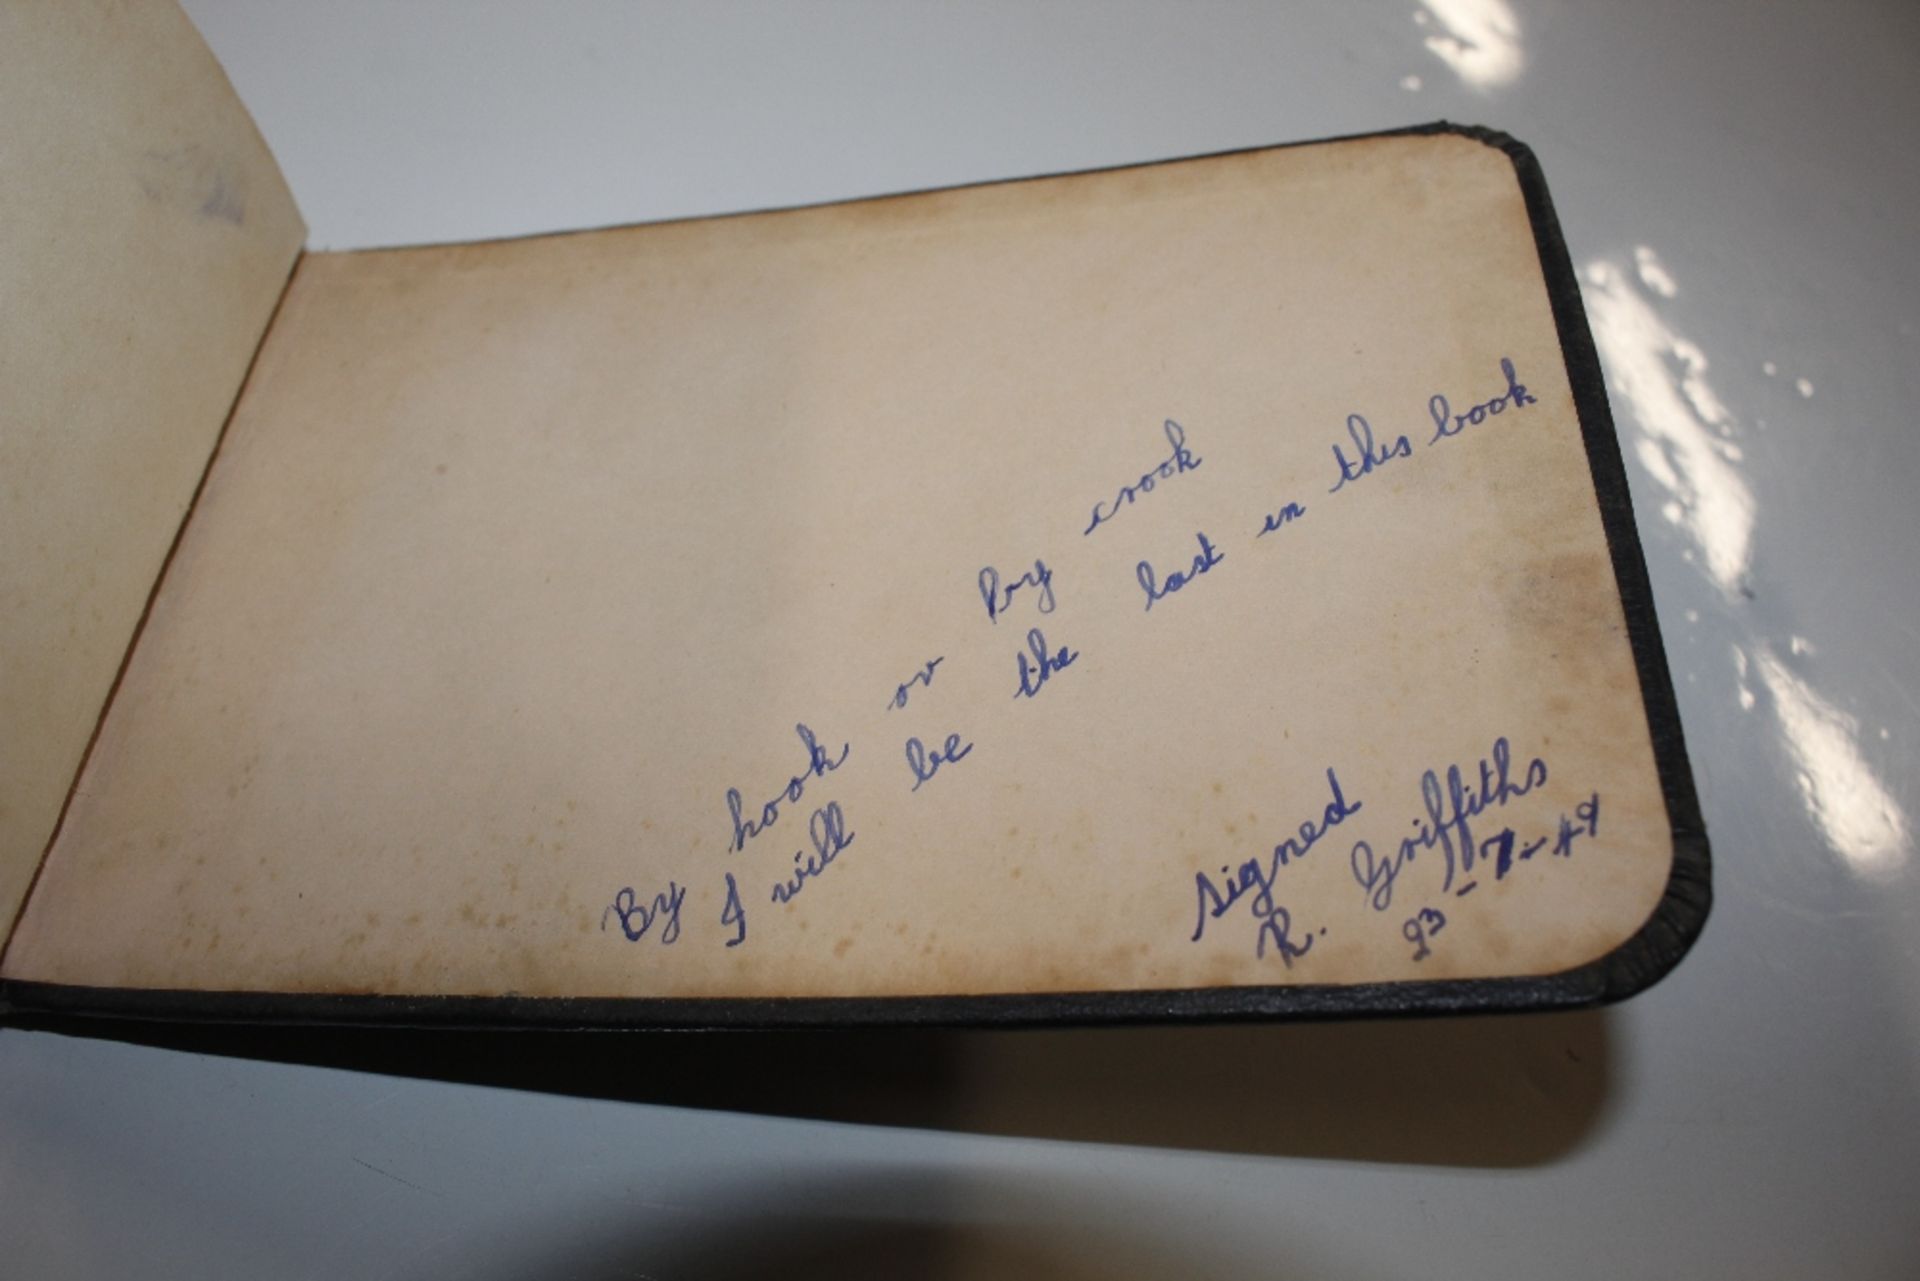 By hook or by crook
I will be the last in this book
signed
R. Griffiths
23-7-49